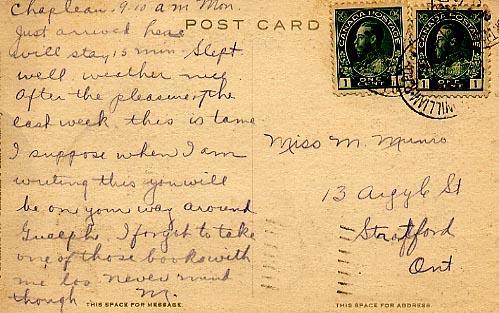 Chapleau. 9.10 a.m Mon.
POST CARD
Just arrived here
will stay 15 min. Slept
well, weather nice
After the pleasure of the
last week this is tame
I suppose when I am
writing this you will
be on your way around
Guelph. I forgot to take
one of those books with
me too. never mind
though M.
CANADA POSTAGE
ONE CENT
1 1
CANADA POSTAGE
ONE CENT
1 1
WILLIAM
Miss M. Munro
13 Argyle St
Stratford
Ont
THIS SPACE FOR MESSAGE.
THIS SPACE FOR ADDRESS.